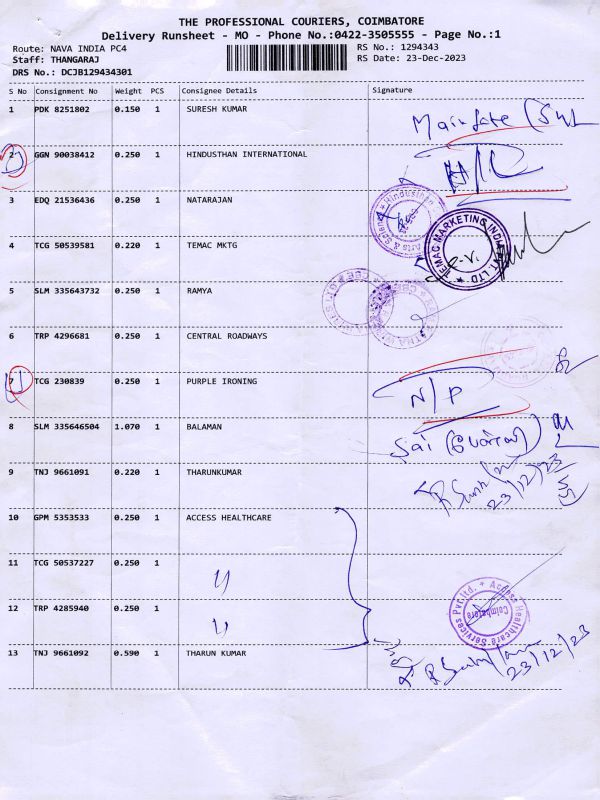 THE PROFESSIONAL COURIERS, COIMBATORE
Delivery Runsheet - MO - Phone No.:0422-3505555 - Page No.:1
Route: NAVA INDIA PC4
RS No.: 1294343
Staff: THANGARAJ
RS Date: 23-Dec-2023
DRS No.: DCJB129434301
S No Consignment No Weight PCS Consignee Details Signature
1 PDK 8251802 0.150 1 SURESH KUMAR
2 GGN 90038412 0.250 1 HINDUSTHAN INTERNATIONAL
3 EDQ 21536436 0.250 1 NATARAJAN
4 TCG 50539581 0.220 1 TEMAC MKTG
TEMAC MARKETING INDIA PVT LTD
5 SLM 335643732 0.250 1 RAMYA
6 TRP 4296681 0.250 1 CENTRAL ROADWAYS
7 TCG 230839 0.250 1 PURPLE IRONING N/P
8 SLM 335646504 1.070 1 BALAMAN Sai
9 TNJ 9661091 0.220 1 THARUNKUMAR 23/12/23
10 GPM 5353533 0.250 1 ACCESS HEALTHCARE
11 TCG 50537227 0.250 1 〃
12 TRP 4285940 0.250 1 〃
Access Healthcare Services Pvt.Ltd. Coimbatore
13 TNJ 9661092 0.590 1 THARUN KUMAR 23/12/23